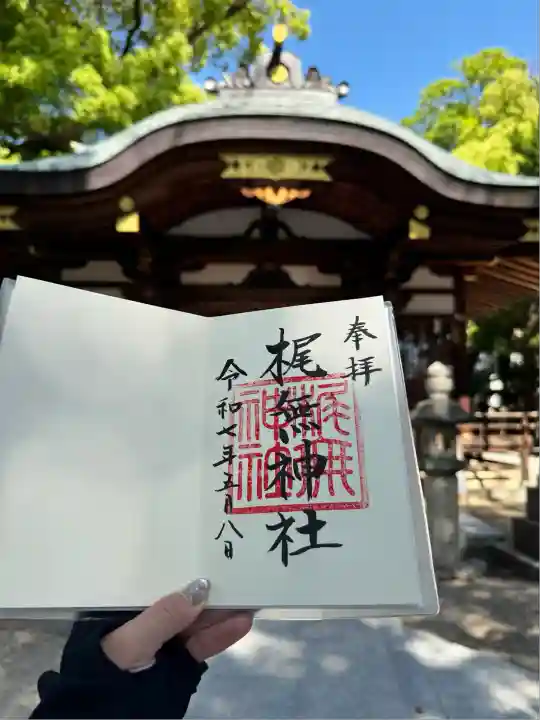 奉拝
梶無神社
令和七年五月八日
梶無
神社